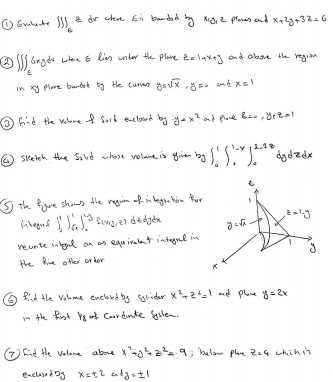 ① Evaluate ∭_E z dv where E is bounded by x,y,z planes and x+2y+3z=6
② ∭_E 6xy dv where E lies under the plane z=1+x+y and above the region
in xy plane bounded by the curves y=√x, y=0 and x=1
③ Find the volume of Solid enclosed by y=x² at plane z=0, y+z=1
④ Sketch the Solid whose volume is given by ∫₀¹ ∫₀^{1-x} ∫₀^{2-2z} dy dz dx
⑤ The figure shows the region of integration for
integral ∫₀¹ ∫_{√x}¹ ∫₀^{1-y} f(x,y,z) dz dy dx
rewrite integral as an equivalent integral in
the five other order
z
1
y=√x
z=1-y
1
y
x
⑥ Find the volume enclosed by cylinder x²+z²=1 and plane y=2x
in the first 1/8 of Coordinate System.
⑦ Find the volume above x²+y²+z²=9, below plane z=4 which is
enclosed by x=±2 and y=±1